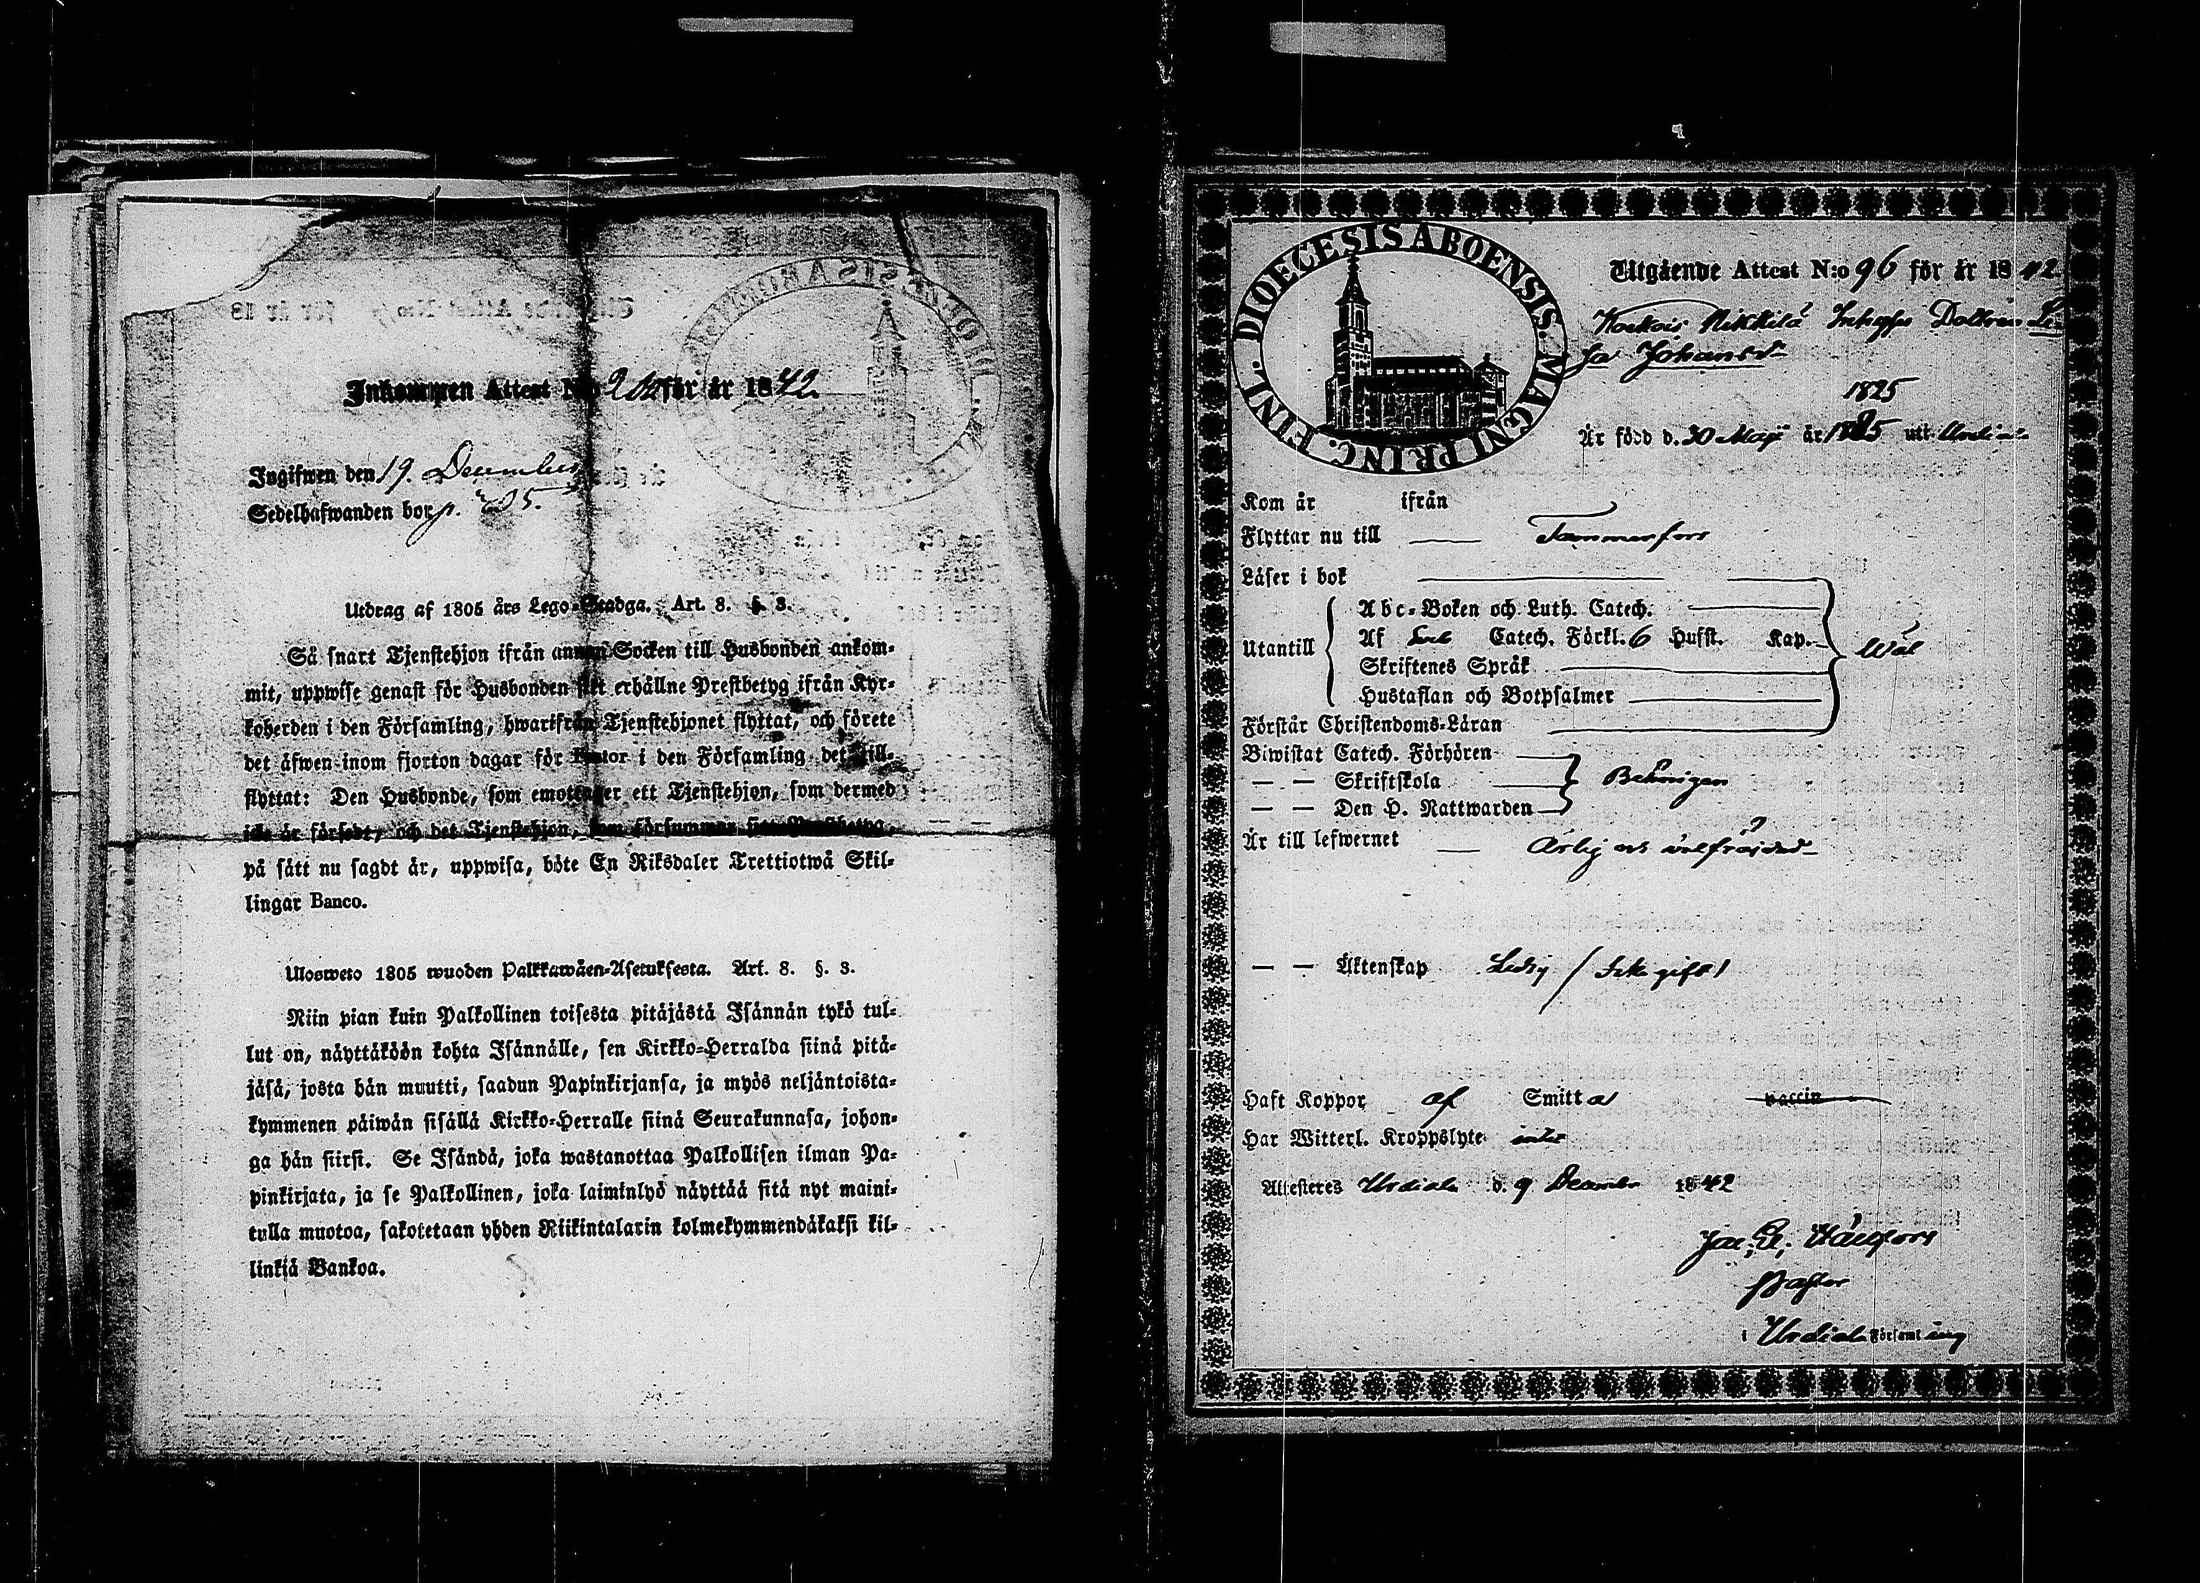 Inkommen Attest N:o för år 1842.
Ingifwen den 19. December
Sedelhafwanden bor p. 235.
Utdrag af 1805 års Lego-Stadga. Art. 8. §. 3.
Så snart Tjenstehjon ifrån annan Socken till Husbonden ankom-
mit, uppwise genast för Husbonden sitt erhållne Prestbetyg ifrån Kyr-
koherden i den Församling, hwarifrån Tjenstehjonet flyttat, och förete
det äfwen inom fjorton dagar för Pastor i den Församling det till-
flyttat: Den Husbonde, som emottager ett Tjenstehjon, som dermed
icke är försedt, och det Tjenstehjon, som försummar sitt Prestbetyg,
på sätt nu sagdt är, uppwisa, böte En Riksdaler Trettiotwå Skil-
lingar Banco.
Ulosweto 1805 wuoden Palkkawäen-Asetuksesta. Art. 8. §. 3.
Niin pian kuin Palkollinen toisesta pitäjästä Isännän tykö tul-
lut on, näyttäköön kohta Isännälle, sen Kirkko-Herralda siinä pitä-
jäsä, josta hän muutti, saadun Papinkirjansa, ja myös neljäntoista-
kymmenen päiwän sisällä Kirkko-Herralle siinä Seurakunnasa, johon-
ga hän siirsi. Se Isändä, joka wastanottaa Palkollisen ilman Pa-
pinkirjata, ja se Palkollinen, joka laiminlyö näyttää sitä nyt maini-
tulla muotoa, sakotetaan yhden Riikintalarin kolmekymmendäkaksi kil-
linkiä Bankoa.
DIOECESIS ABOENSIS. MAGNI PRINC. FINL.
Utgående Attest N:o 96 för år 1842.
Nikkilä Inhyses Dottren
Johansdr
1825
Är född d. 30 Maji år 1825 uti Urdiala
Kom år ifrån
Flyttar nu till Tammerfors
Läser i bok
Abc-Boken och Luth. Catech.
Utantill Af Catech. Förkl. 6 Husst. Kap. Wäl
Skriftenes Språk
Hustaflan och Botpsalmer
Förstår Christendoms-Läran
Biwistat Catech. Förhören
— — Skriftskola Behörigen
— — Den H. Nattwarden
Är till lefwernet Ärlig och wälfräjdad
— — Äktenskap Ledig / Icke gift /
Haft Koppor af Smitta vaccin
Har Witterl. Kroppslyte intet
Attesteras Urdiala d. 9 December 1842
Pastor
i Urdiala Församling